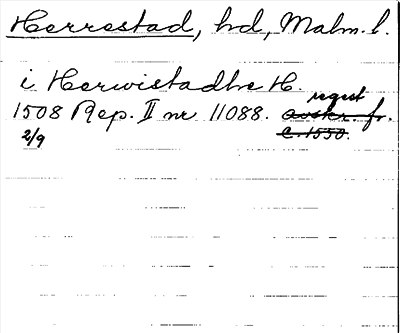 Herrestad, hd, Malm. l.
i Herwistadhe H.
1508 Rep. II nr 11088. regest avskr. fr.
2/9 c. 1550.